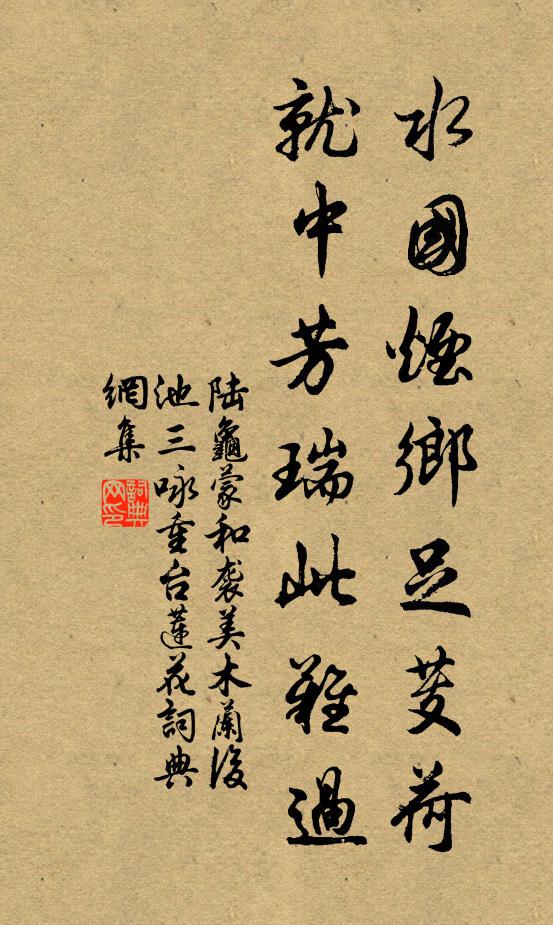 水國煙鄉足芰荷
就中芳瑞此難過
陆龜蒙和袭美木蘭後
池三咏重台蓮花詞典
網集
詞典
网印